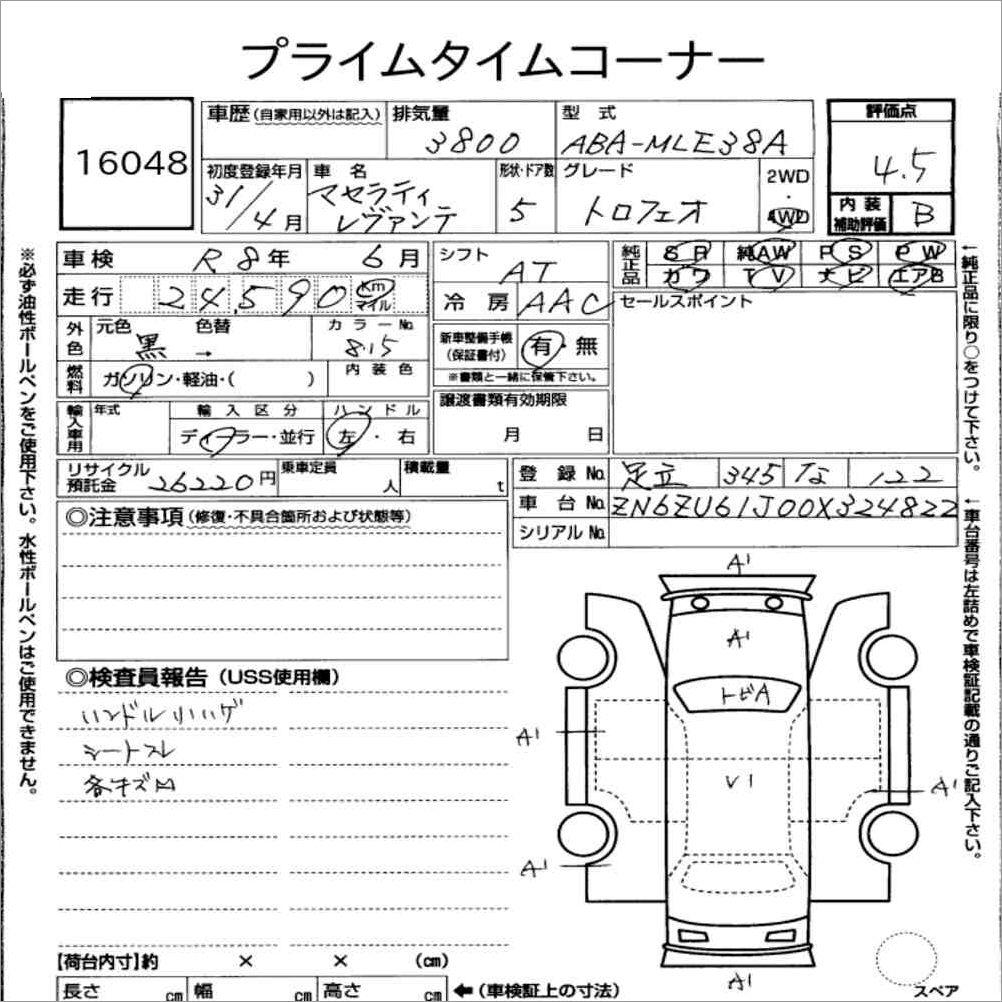 プライムタイムコーナー
16048
車歴(自家用以外は記入) 排気量 3800 型式 ABA-MLE38A 評価点 4.5
初度登録年月 31/4月 車名 マセラティ レヴァンテ 形状・ドア数 5 グレード トロフェオ 2WD・4WD 内装補助評価 B
車検 R8年 6月
走行 24,590 Km マイル
外色 元色 黒 色替 → カラーNo. 815
燃料 ガソリン・軽油・( ) 内装色
輸入車用 年式 輸入区分 ディーラー・並行 ハンドル 左・右
シフト AT
冷房 AAC
新車整備手帳(保証書付) 有・無
※書類と一緒に保管下さい。
譲渡書類有効期限
月 日
純正品 SR 純AW PS PW
カワ TV ナビ エアB
セールスポイント
リサイクル預託金 26220円 乗車定員 人 積載量 t
登録No. 足立 345 な 122
車台No. ZN6ZU61J00X324822
シリアルNo.
◎注意事項(修復・不具合箇所および状態等)
◎検査員報告(USS使用欄)
ハンドルリハゲ
シートスレ
各キズ有
A1
A1
トビA
A1
V1
A1
A1
A1
【荷台内寸】約 × × (cm)
長さ cm 幅 cm 高さ cm ←(車検証上の寸法)
スペア
※必ず油性ボールペンをご使用下さい。水性ボールペンはご使用できません。
←純正品に限り○をつけて下さい。
←車台番号は左詰めで車検証記載の通りご記入下さい。